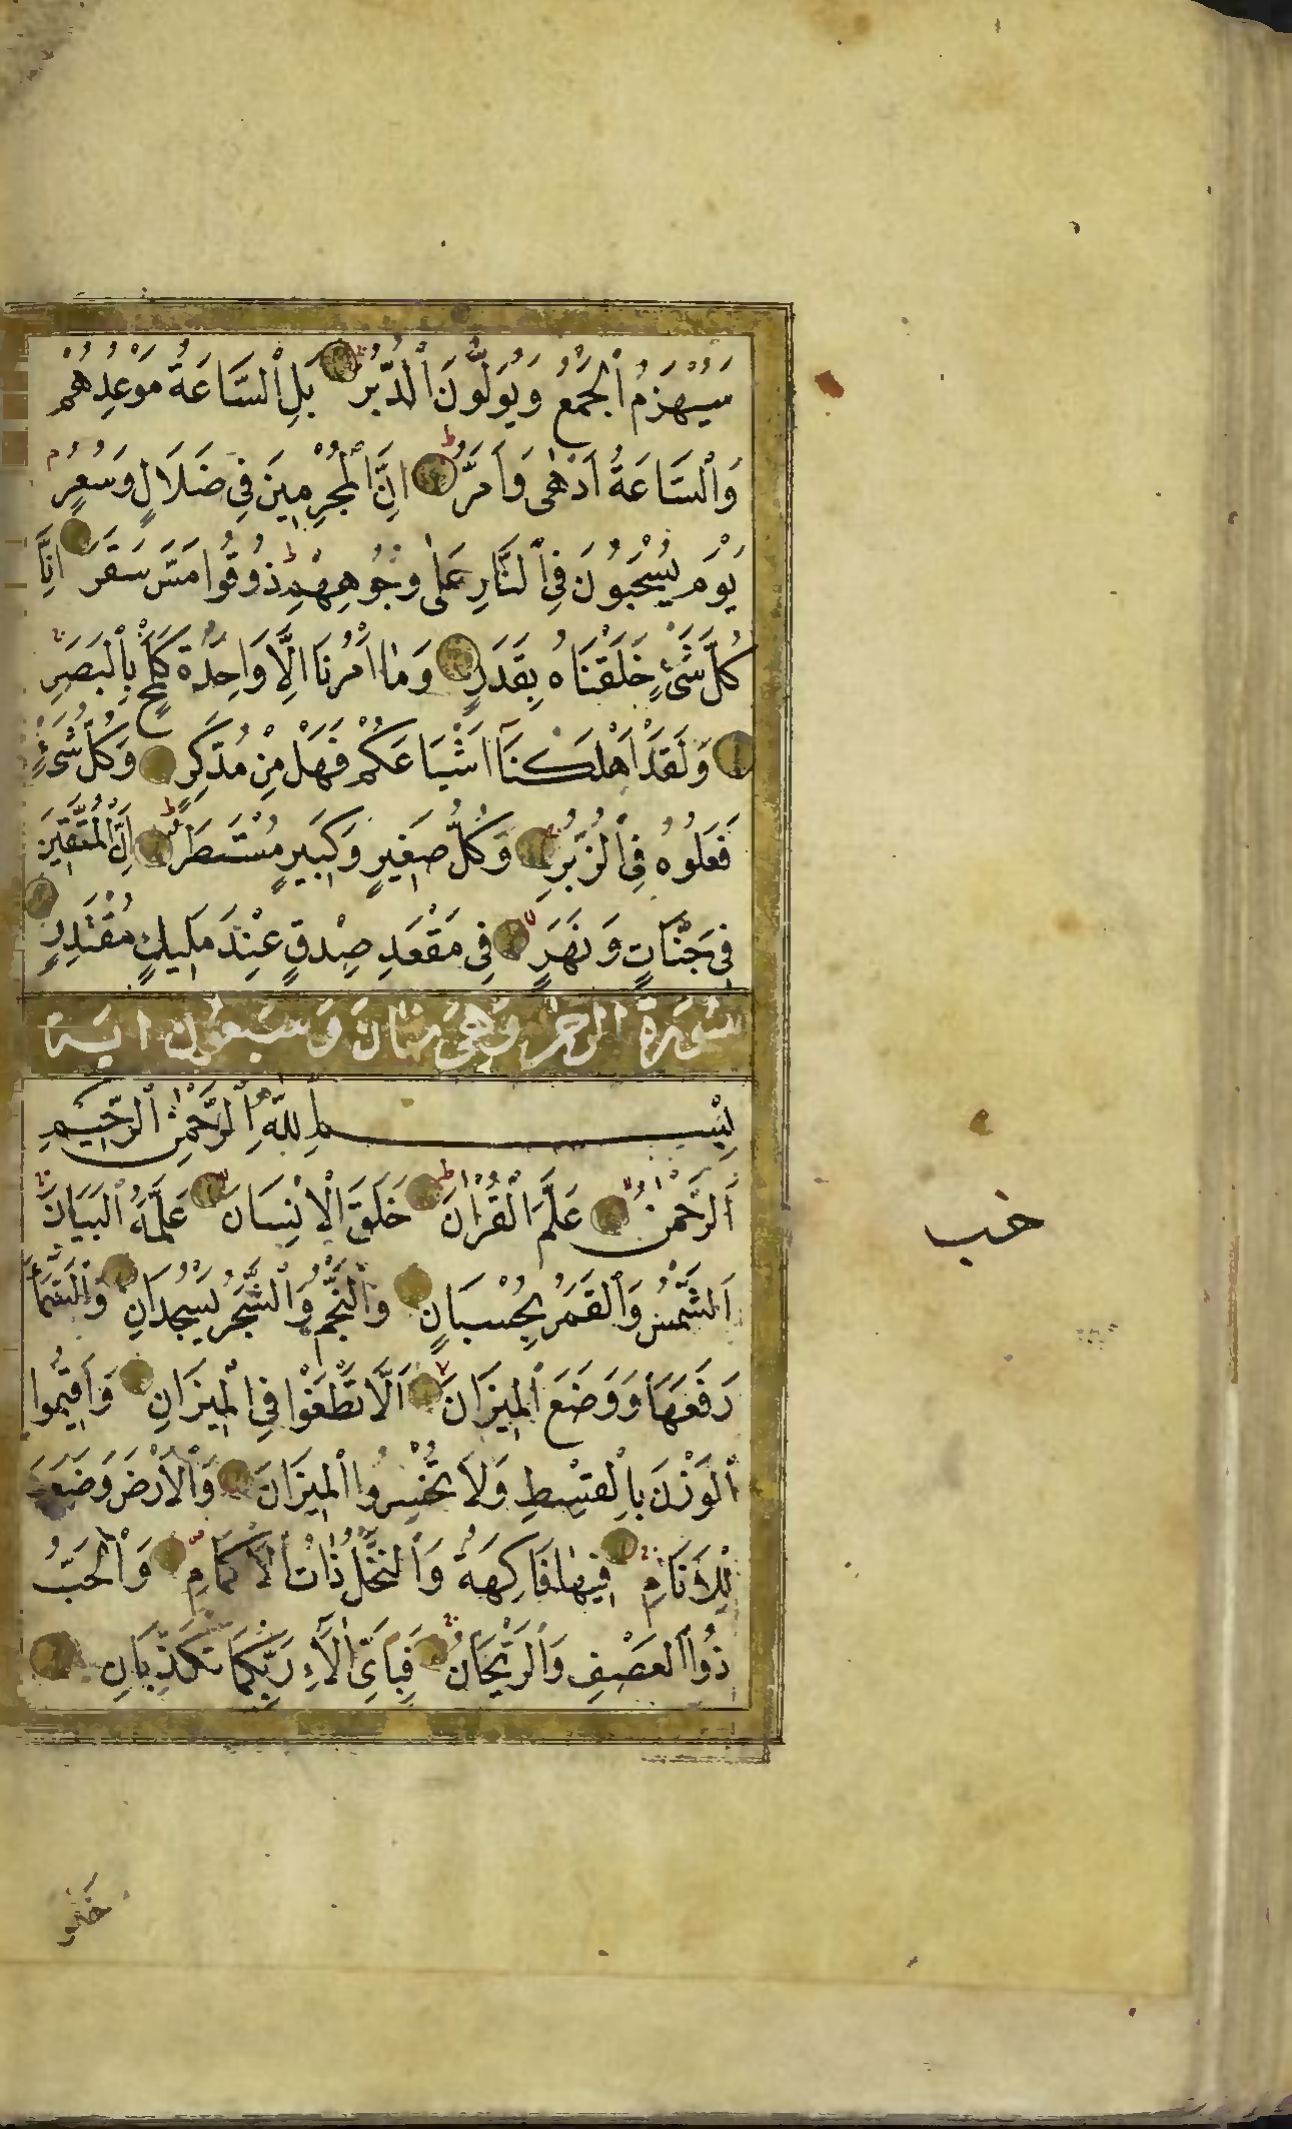 سَيُهْزَمُ ٱلْجَمْعُ وَيُوَلُّونَ ٱلدُّبُرَ بَلِ ٱلسَّاعَةُ مَوْعِدُهُمْ
وَٱلسَّاعَةُ اَدْهٰى وَاَمَرُّ ط اِنَّ ٱلْمُجْرِمِينَ فِى ضَلَالٍ وَسُعُرٍ م
يَوْمَ يُسْحَبُونَ فِى ٱلنَّارِ عَلٰى وُجُوهِهِمْ ط ذُوقُوا مَسَّ سَقَرَ اِنَّا
كُلَّ شَىْءٍ خَلَقْنَاهُ بِقَدَرٍ وَمٰا اَمْرُنَا اِلَّا وَاحِدَةٌ كَلَمْحٍ بِٱلْبَصَرِ
وَلَقَدْ اَهْلَكْنَآ اَشْيَاعَكُمْ فَهَلْ مِنْ مُدَّكِرٍ وَكُلُّ شَىْءٍ
فَعَلُوهُ فِى ٱلزُّبُرِ وَكُلُّ صَغِيرٍ وَكَبِيرٍ مُسْتَطَرٌ ط اِنَّ ٱلْمُتَّقِينَ
فِى جَنَّاتٍ وَنَهَرٍ فِى مَقْعَدِ صِدْقٍ عِنْدَ مَلِيكٍ مُقْتَدِرٍ
سُورَةُ الرحمٰن وَهِىَ ثمَانَ وَسَبعُون ايَة
بِسْمِ ٱللّٰهِ ٱلرَّحْمٰنِ ٱلرَّحِيمِ
اَلرَّحْمٰنُ عَلَّمَ ٱلْقُرْاٰنَ ط خَلَقَ ٱلْاِنْسَانَ عَلَّمَهُ ٱلْبَيَانَ
اَلشَّمْسُ وَٱلْقَمَرُ بِحُسْبَانٍ وَٱلنَّجْمُ وَٱلشَّجَرُ يَسْجُدَانِ وَٱلسَّمَآءَ
رَفَعَهَا وَوَضَعَ ٱلْمِيزَانَ اَلَّا تَطْغَوْا فِى ٱلْمِيزَانِ وَاَقِيمُوا
ٱلْوَزْنَ بِٱلْقِسْطِ وَلَا تُخْسِرُوا ٱلْمِيزَانَ وَٱلْاَرْضَ وَضَعَهَا
لِلْاَنَامِ فِيهٰا فَاكِهَةٌ وَٱلنَّخْلُ ذٰاتُ ٱلْاَكْمَامِ وَٱلْحَبُّ
ذُو ٱلْعَصْفِ وَٱلرَّيْحَانُ فَبِاَىِّ اٰلَآءِ رَبِّكُمَا تُكَذِّبَانِ
خَلَقَ